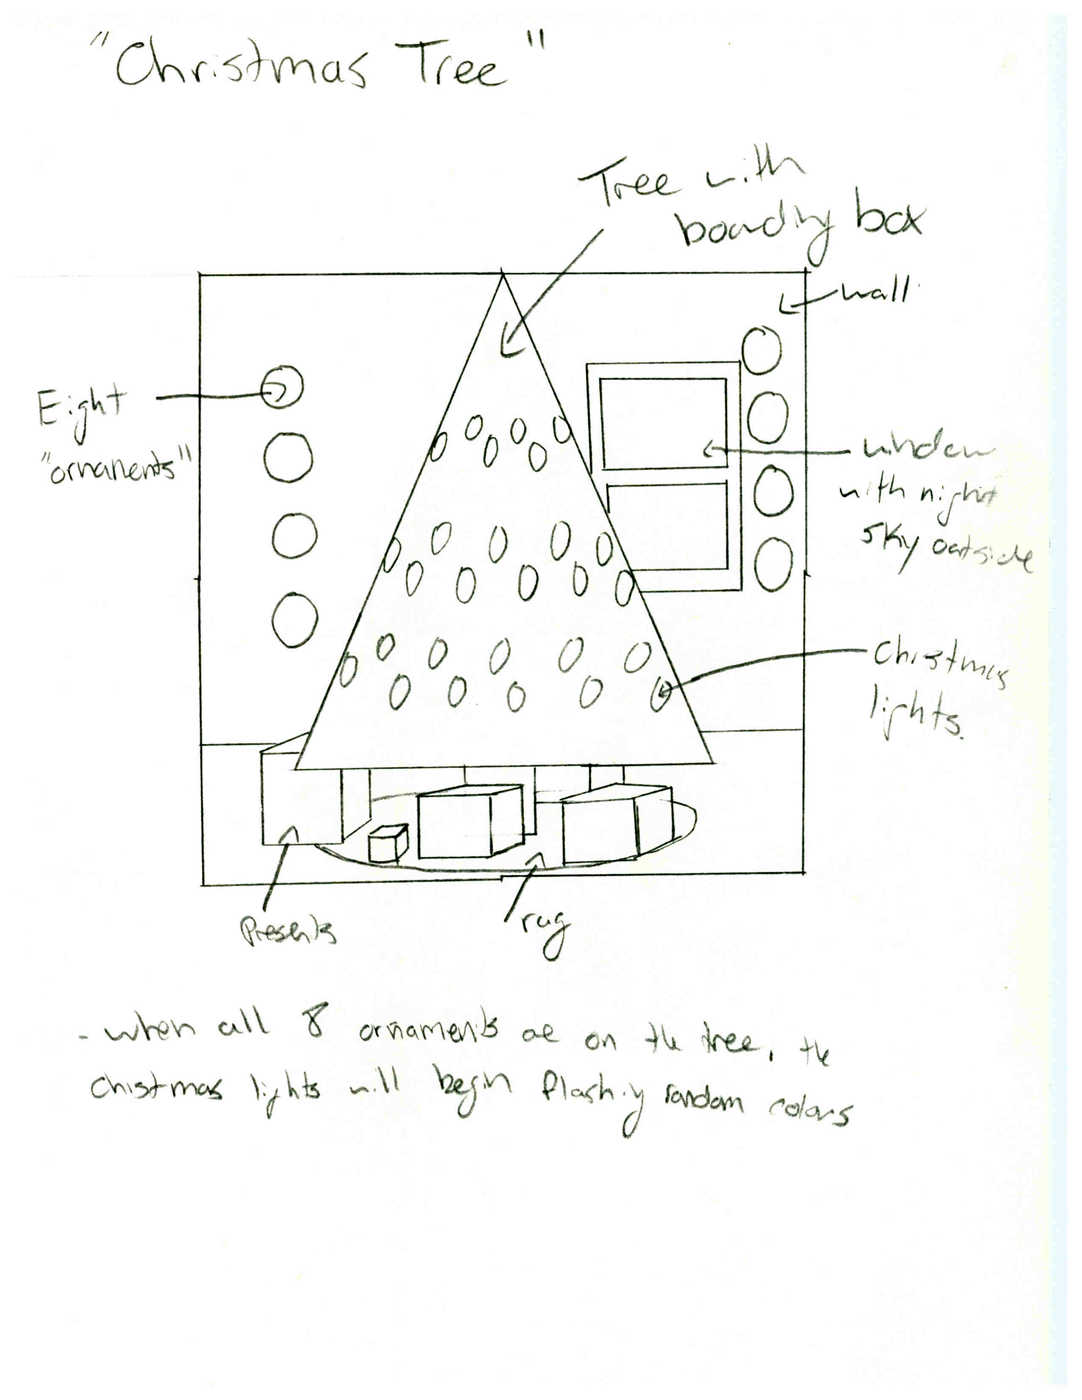 "Christmas Tree"
Tree with
bounding box
wall
Eight
"ornaments"
window
with night
sky outside
Christmas
lights.
Presents
rug
- when all 8 ornaments are on the tree, the
christmas lights will begin flashing random colors